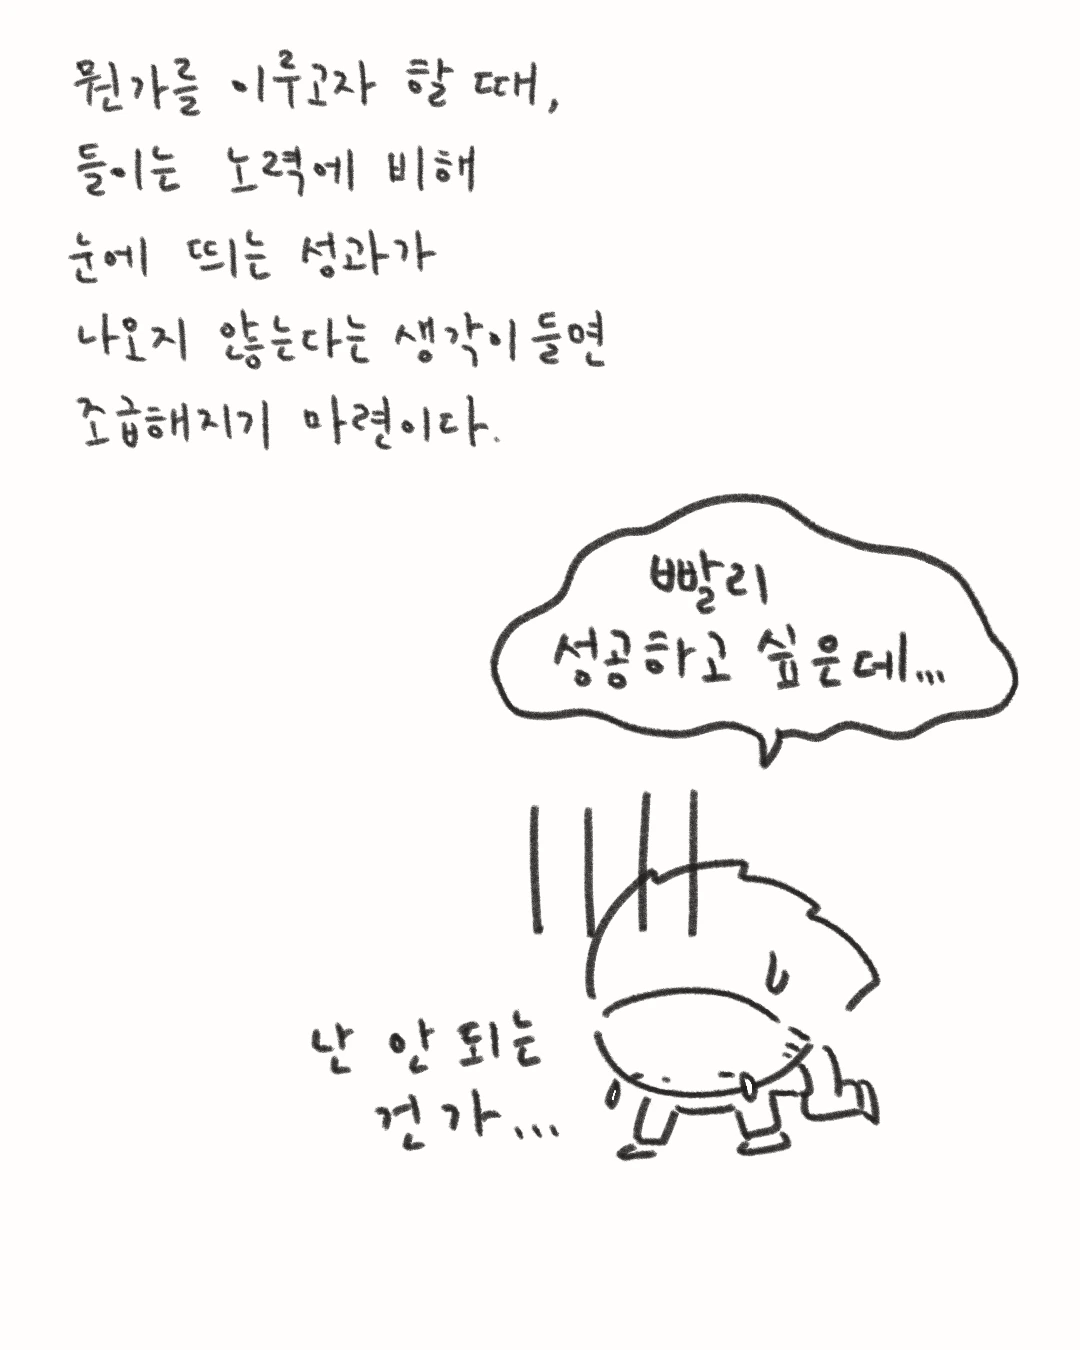 뭔가를 이루고자 할 때,
들이는 노력에 비해
눈에 띄는 성과가
나오지 않는다는 생각이 들면
조급해지기 마련이다.
빨리
성공하고 싶은데...
난 안 되는
건가...